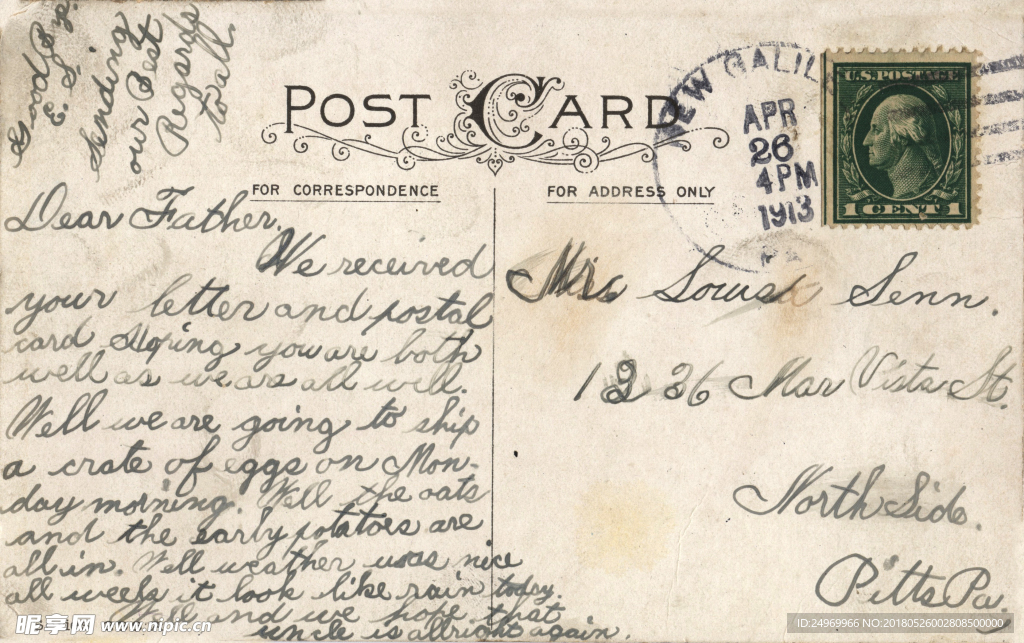 POST CARD
FOR CORRESPONDENCE
FOR ADDRESS ONLY
NEW GALIL
APR
26
4 PM
1913
PA
U.S. POSTAGE
1 CENT 1
Dear Father,
We received
your letter and postal
card Hoping you are both
well as we are all well.
Well we are going to ship
a crate of eggs on Mon-
day morning. Well the oats
and the early potatoes are
all in. Well weather was nice
all week it look like rain today.
Well and we hope that
uncle is allright again.
Sending
our Best
Regards
to all.
Good Bye.
Senn.
1236 Mar Vista St.
North Side.
Pitts Pa.
昵享网 www.nipic.cn
ID:24969966 NO:20180526002808500000